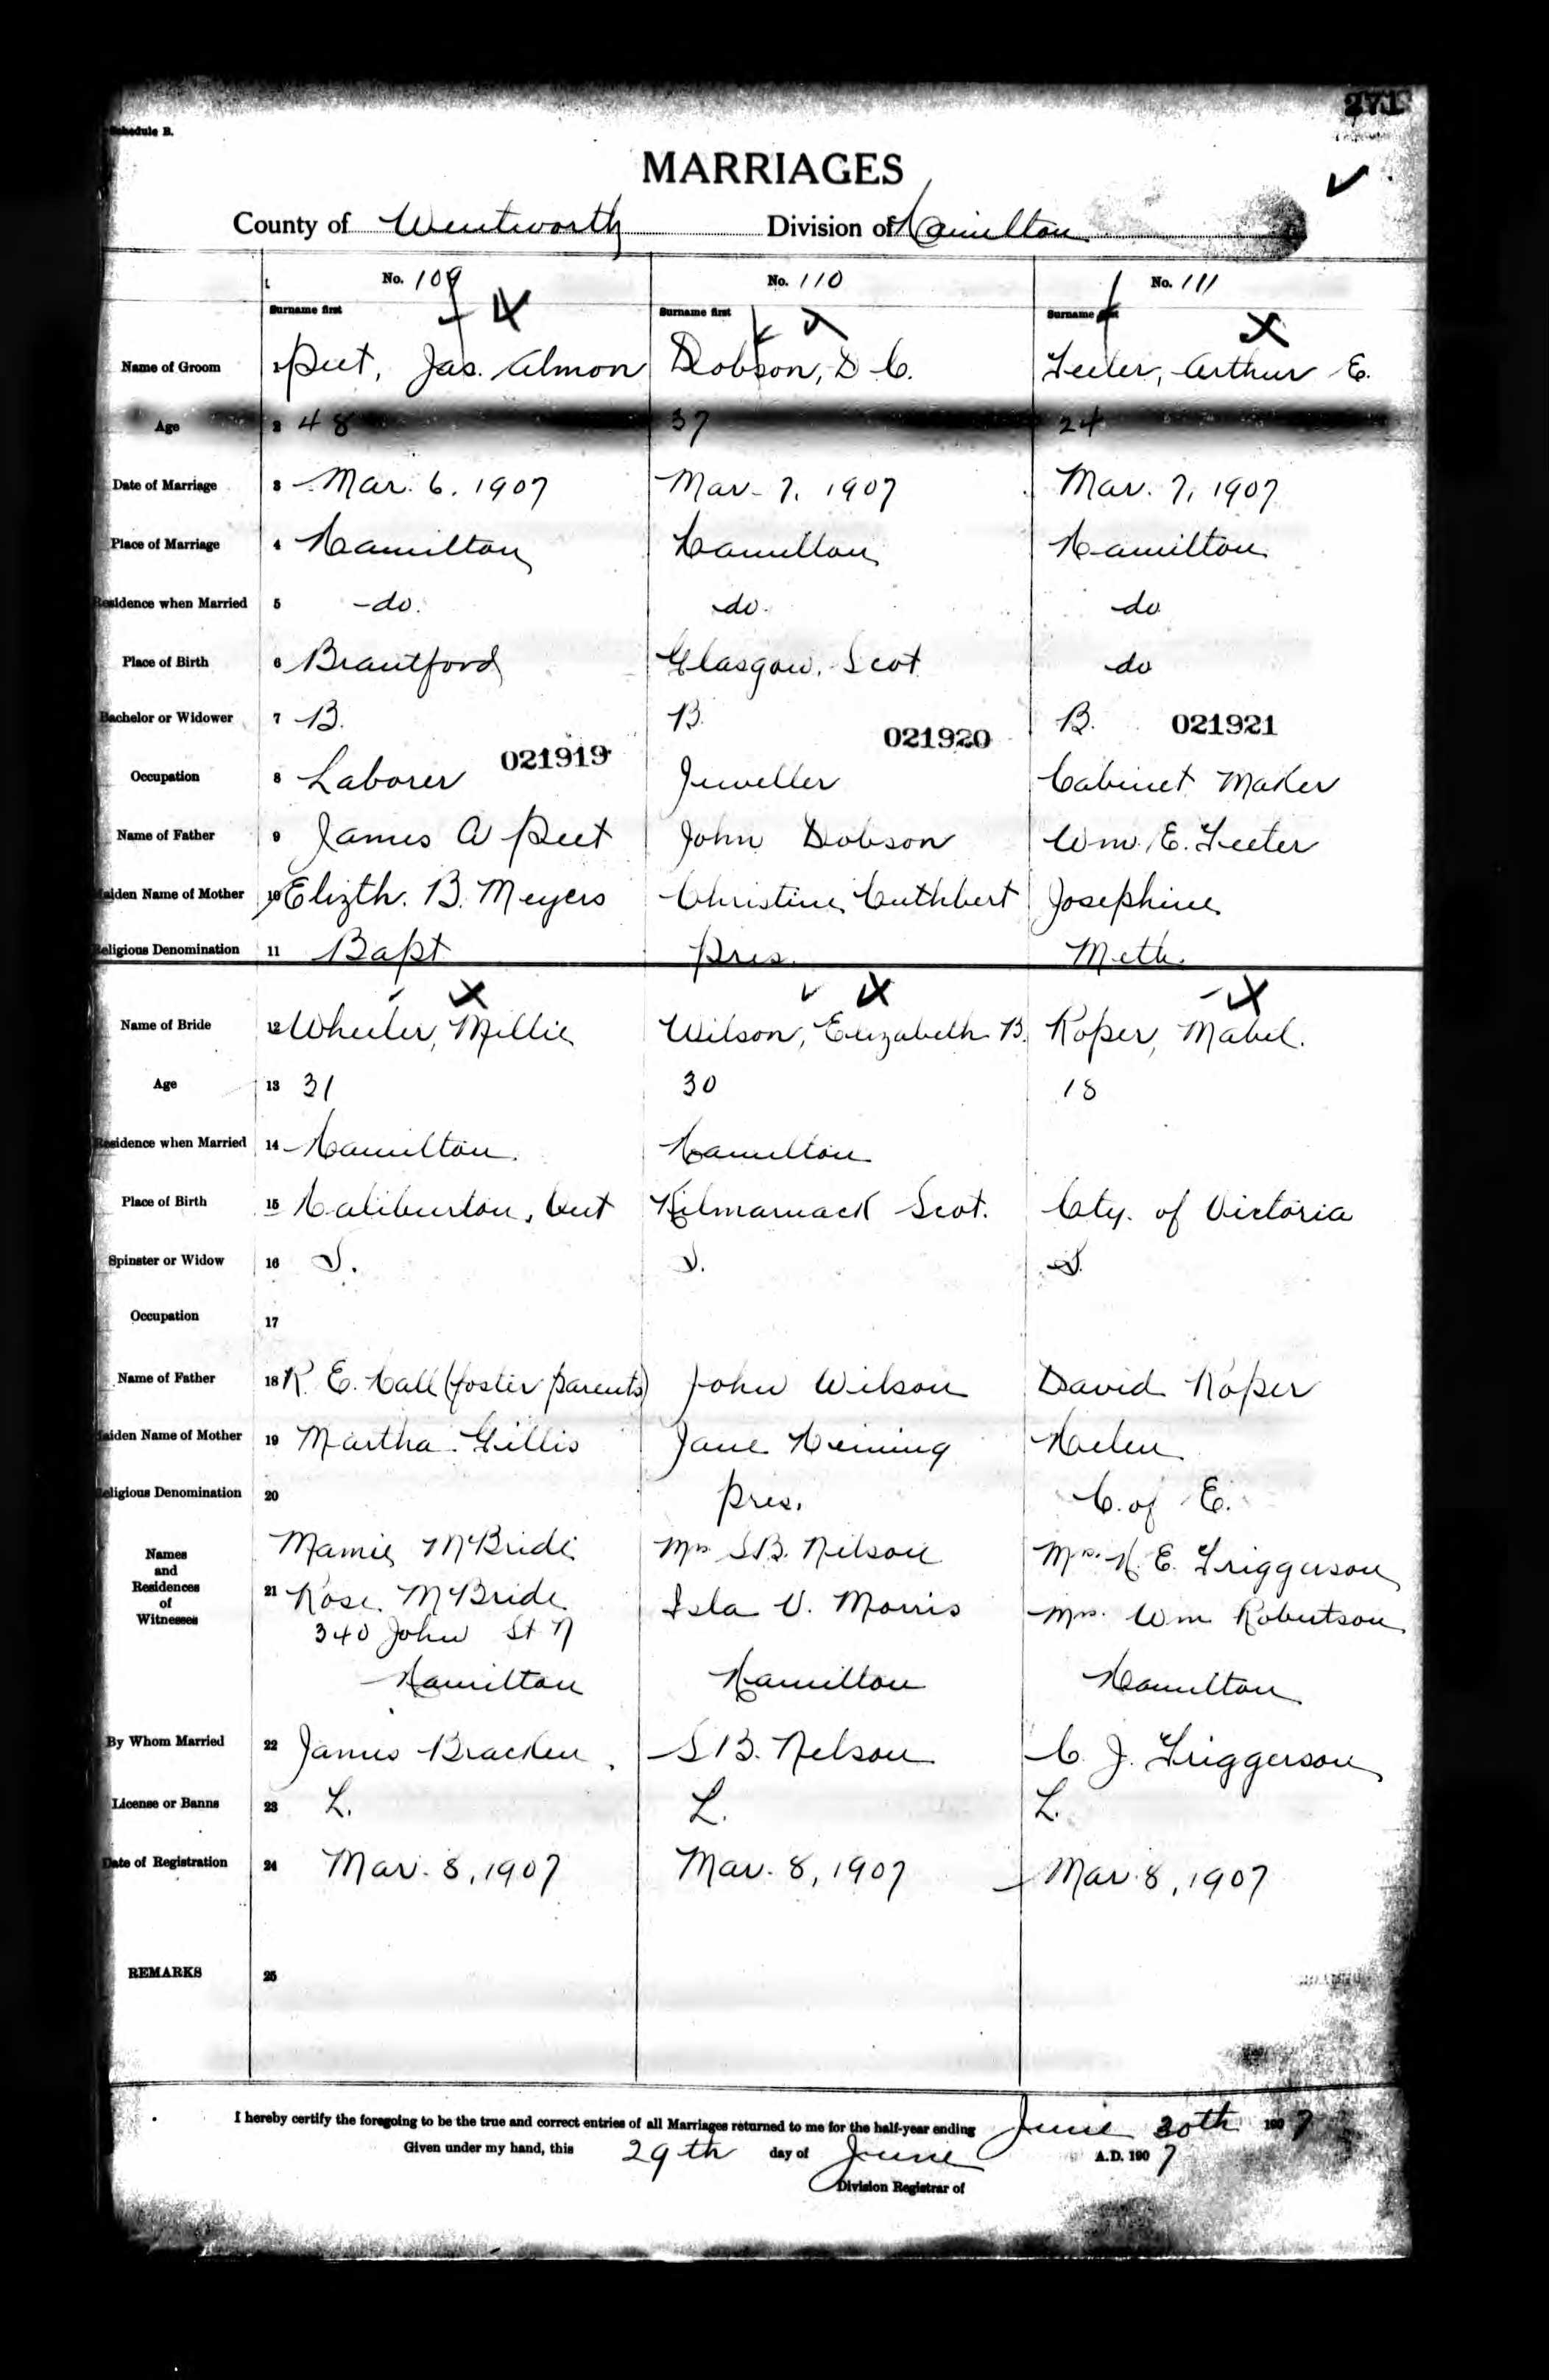 271
Schedule B.
MARRIAGES
County of Wentworth Division of Hamilton
No. 109 No. 110 No. 111
Surname first Surname first Surname first
Name of Groom 1 Peet, Jas. Almon Dobson, D C. Teeter, Arthur E.
Age 2 48 37 24
Date of Marriage 3 Mar. 6, 1907 Mar. 7, 1907 Mar. 7, 1907
Place of Marriage 4 Hamilton Hamilton Hamilton
Residence when Married 5 do. do. do
Place of Birth 6 Brantford Glasgow, Scot do
Bachelor or Widower 7 B. B. B.
021919 021920 021921
Occupation 8 Laborer Jeweller Cabinet Maker
Name of Father 9 James A Peet John Dobson Wm. E. Teeter
Maiden Name of Mother 10 Elizth. B. Meyers Christine Cuthbert Josephine
Religious Denomination 11 Bapt Pres. Meth.
Name of Bride 12 Wheeler, Millie Wilson, Elizabeth B. Roper, Mabel.
Age 13 31 30 18
Residence when Married 14 Hamilton. Hamilton
Place of Birth 15 Haliburton, Ont Kilmarnack Scot. Cty. of Victoria
Spinster or Widow 16 S. S. S.
Occupation 17
Name of Father 18 R. E. Hall (foster parents) John Wilson David Roper
Maiden Name of Mother 19 Martha Gillis Jane Helen
Religious Denomination 20 Pres. C. of E.
Names and Residences of Witnesses 21
Mamie McBride Mrs S.B. Nelson Mrs. H. E. Triggerson
Rose McBride Isla V. Morris Mrs. Wm Robertson
340 John St N
Hamilton Hamilton Hamilton
By Whom Married 22 James Bracken S B. Nelson C. J. Triggerson
License or Banns 23 L. L. L.
Date of Registration 24 Mar. 8, 1907 Mar. 8, 1907 Mar. 8, 1907
REMARKS 25
I hereby certify the foregoing to be the true and correct entries of all Marriages returned to me for the half-year ending June 30th 1907
Given under my hand, this 29th day of June A.D. 1907
Division Registrar of